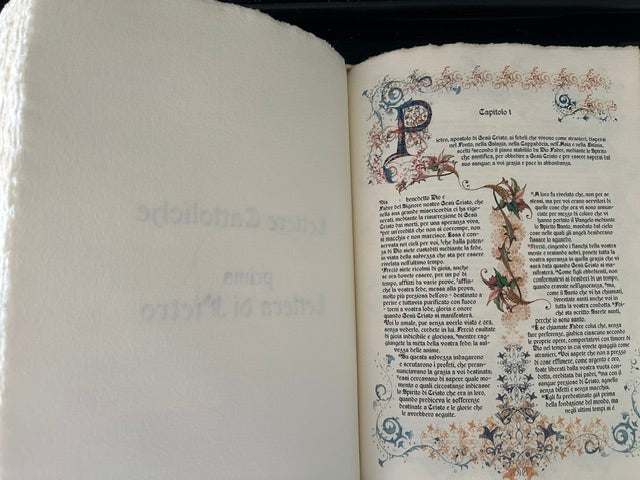 Lettere Cattoliche
prima
Lettera di Pietro
Capitolo 1
Pietro, apostolo di Gesù Cristo, ai fedeli che vivono come stranieri, dispersi
nel Ponto, nella Galazia, nella Cappadòcia, nell'Asia e nella Bitinia,
scelti ²secondo il piano stabilito da Dio Padre, mediante lo Spirito
che santifica, per obbedire a Gesù Cristo e per essere aspersi dal
suo sangue: a voi grazia e pace in abbondanza.
Sia benedetto Dio e
Padre del Signore nostro Gesù Cristo, che
nella sua grande misericordia ci ha rige-
nerati, mediante la risurrezione di Gesù
Cristo dai morti, per una speranza viva,
⁴per un'eredità che non si corrompe, non
si macchia e non marcisce. Essa è con-
servata nei cieli per voi, ⁵che dalla poten-
za di Dio siete custoditi mediante la fede,
in vista della salvezza che sta per essere
rivelata nell'ultimo tempo.
⁶Perciò siete ricolmi di gioia, anche
se ora dovete essere, per un po' di
tempo, afflitti da varie prove, ⁷affin-
ché la vostra fede, messa alla prova,
molto più preziosa dell'oro - destinato a
perire e tuttavia purificato con fuoco
- torni a vostra lode, gloria e onore
quando Gesù Cristo si manifesterà.
⁸Voi lo amate, pur senza averlo visto e ora,
senza vederlo, credete in lui. Perciò esultate
di gioia indicibile e gloriosa, ⁹mentre rag-
giungete la mèta della vostra fede: la sal-
vezza delle anime.
¹⁰Su questa salvezza indagarono
e scrutarono i profeti, che prean-
nunciavano la grazia a voi destinata;
¹¹essi cercavano di sapere quale mo-
mento o quali circostanze indicasse
lo Spirito di Cristo che era in loro,
quando prediceva le sofferenze
destinate a Cristo e le glorie che
le avrebbero seguite.
¹²A loro fu rivelato che, non per se
stessi, ma per voi erano servitori di
quelle cose che ora vi sono annun-
ciate per mezzo di coloro che vi
hanno portato il Vangelo mediante
lo Spirito Santo, mandato dal cielo:
cose nelle quali gli angeli desiderano
fissare lo sguardo.
¹³Perciò, cingendo i fianchi della vostra
mente e restando sobri, ponete tutta la
vostra speranza in quella grazia che vi
sarà data quando Gesù Cristo si ma-
nifesterà. ¹⁴Come figli obbedienti, non
conformatevi ai desideri di un tempo,
quando eravate nell'ignoranza, ¹⁵ma,
come il Santo che vi ha chiamati,
diventate santi anche voi in
tutta la vostra condotta. ¹⁶Poi-
ché sta scritto: Sarete santi,
perché io sono santo.
¹⁷E se chiamate Padre colui che, senza
fare preferenze, giudica ciascuno secondo
le proprie opere, comportatevi con timore di
Dio nel tempo in cui vivete quaggiù come
stranieri. ¹⁸Voi sapete che non a prezzo
di cose effimere, come argento e oro,
foste liberati dalla vostra vuota con-
dotta, ereditata dai padri, ¹⁹ma con il
sangue prezioso di Cristo, agnello
senza difetti e senza macchia.
²⁰Egli fu predestinato già prima
della fondazione del mondo, ma
negli ultimi tempi si è